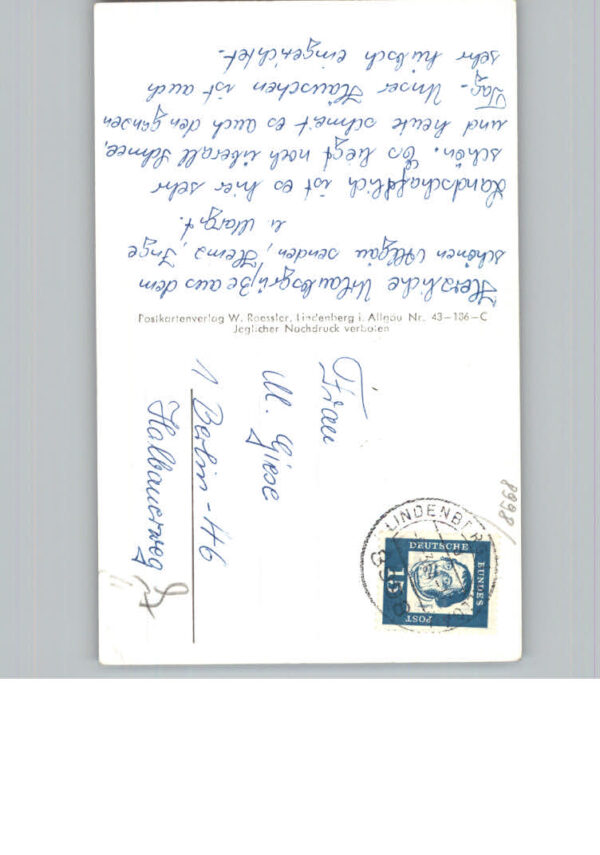 Herzliche Urlaubsgrüße aus dem
schönen Allgäu senden, Heinz, Inge
u Margit.
Landschaftlich ist es hier sehr
schön. Es liegt noch überall Schnee,
und heute schneit es auch den ganzen
Tag. Unser Häuschen ist auch
sehr hübsch eingerichtet.
Postkartenverlag W. Roessler, Lindenberg i. Allgäu Nr. 43-186-C
Jeglicher Nachdruck verboten
Frau
M. Giese
1 Berlin-46
Halbauerweg
8998
LINDENBERG
DEUTSCHE
BUNDES
POST
15